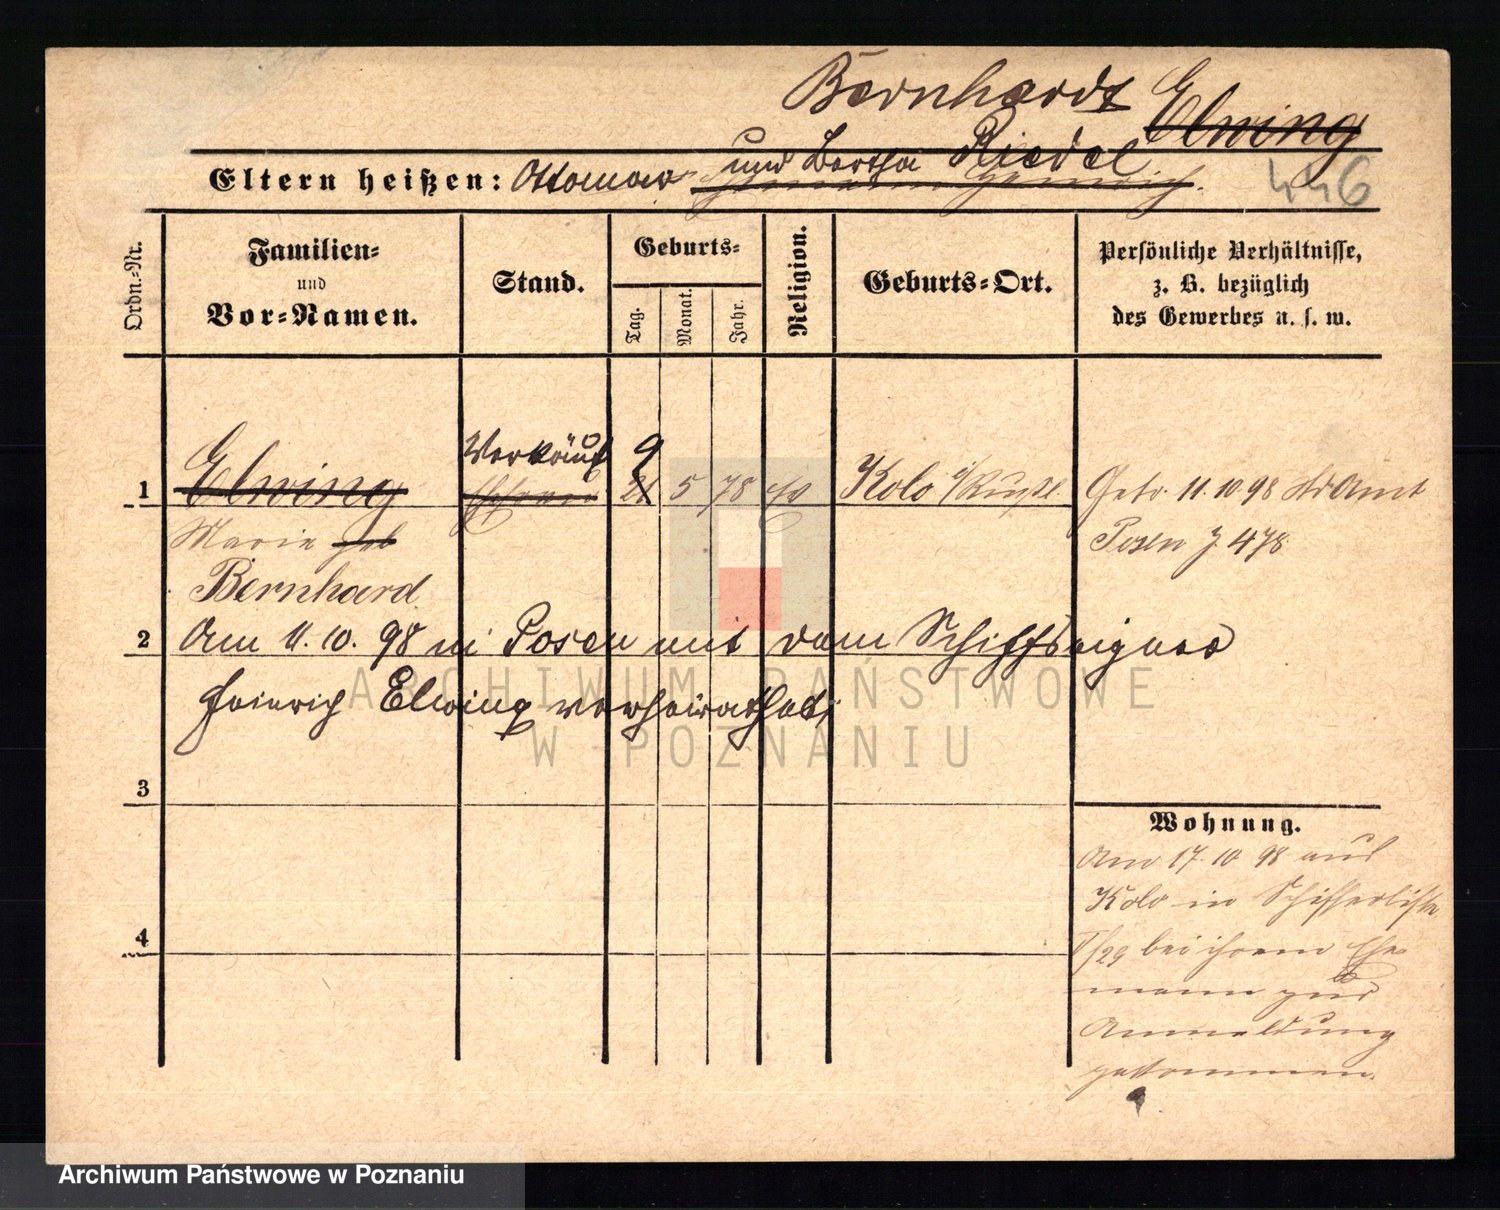 Bernhardt Elwing
446
Eltern heißen: Ottomar und Bertha Riedel
Ordn.-Nr.
Familien-
und
Vor-Namen.
Stand.
Geburts-
Tag.
Monat.
Jahr.
Religion.
Geburts-Ort.
Persönliche Verhältnisse,
z. B. bezüglich
des Gewerbes u. s. w.
1
Elwing
Verkäuf
9
21 5 78
Kolo i/Rußl.
Getr. 11.10.98 StdAmt
Posen J. 478
Marie geb
Bernhard
2
Am 11.10.98 in Posen mit dem Schiffseigner
Heinrich Elwing verheirathet.
3
4
Wohnung.
Am 17.10 98 aus
Kolo in Schifferliste
V/29 bei ihrem Ehe
mann zur
Anmeldung
gekommen.
ARCHIWUM PAŃSTWOWE
W POZNANIU
Archiwum Państwowe w Poznaniu